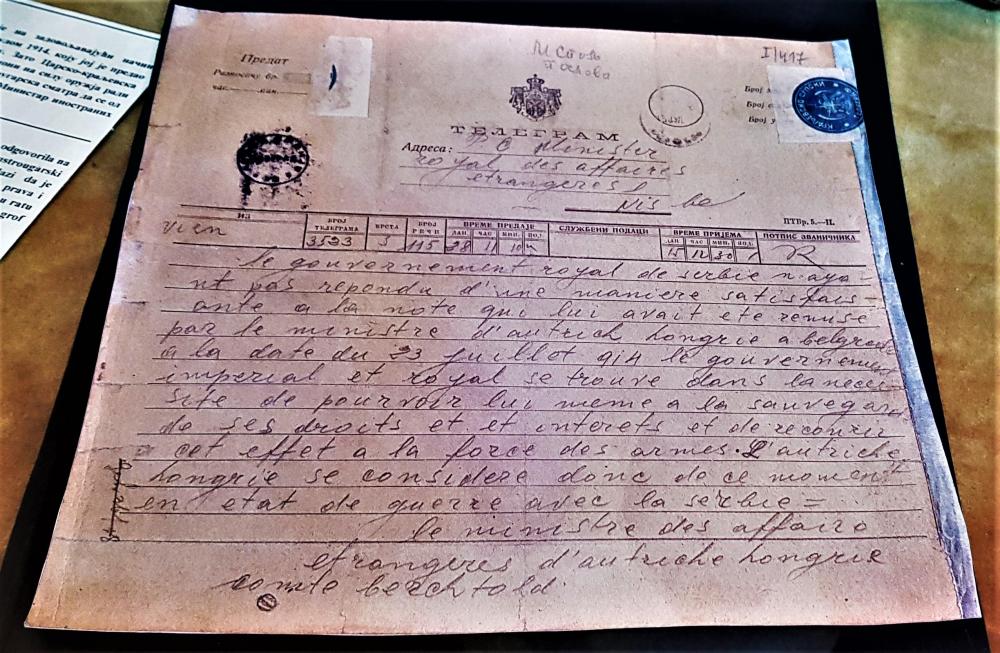 на задовољавајући начин
1914. коју јој је предао
Зато Царско-краљевска
на силу оружја ради
сматра да се од
Министар иностраних
одговорила на
да је
права и
рату
grof
Предат
Разносачу бр.
час
I/417
Број
Број
Број
ТЕЛЕГРАМ
Адреса:
Minister
royal des affaires
etrangeres
Nis
ПТБр. 5.—II.
ИЗ
БРОЈ ТЕЛЕГРАМА
ВРСТА
БРОЈ РЕЧИ
ВРЕМЕ ПРЕДАЈЕ
СЛУЖБЕНИ ПОДАЦИ
ВРЕМЕ ПРИЈЕМА
ПОТПИС ЗВАНИЧНИКА
ДАН. ЧАС МИН. ПОД.
ДАН. ЧАС МИН. ПОД.
Vien 3523 5 115 28 11 10
le gouvernement royal de serbie n aya-
nt pas repondu d'une maniere satisfais-
ante a la note qui lui avait ete remise
par le ministre d'autrich hongrie a belgrade
a la date du 23 juillot 914 le gouvernement
imperial et royal se trouve dans la neces
site de pourvoir lui meme a la sauvegar
de ses droits et et interets et de recourir
a cet effet a la force des armes. L'autriche
hongrie se considere donc de ce moment
en etat de guerre avec la serbie =
le ministre des affairo
etrangeres d'autriche hongrie
comte berchtold